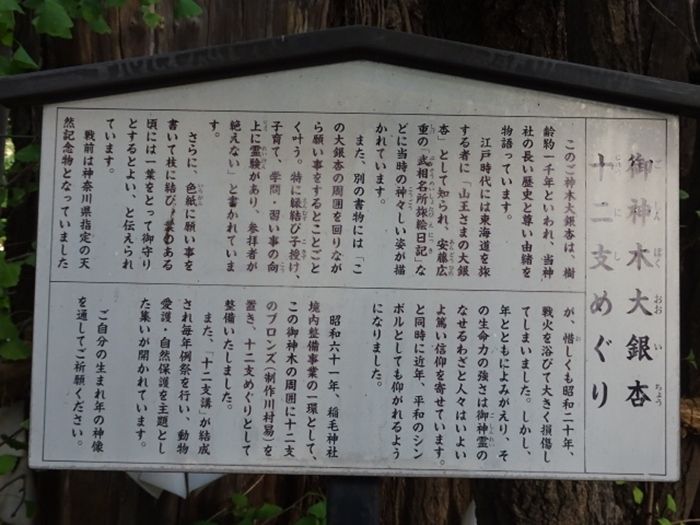 御神木大銀杏
ご しん ぼく おお い ちょう
十二支めぐり
じゅう に し
このご神木大銀杏は、樹
齢約一千年といわれ、当神
社の長い歴史と尊い由緒を
物語っています。
江戸時代には東海道を旅
する者に「山王さまの大銀
杏」として知られ、安藤広
重の「武相名所旅絵日記」な
どに当時の神々しい姿が描
かれています。
また、別の書物には「こ
の大銀杏の周囲を回りなが
ら願い事をするとことごと
く叶う。特に縁結び子授け、
子育て、学問・習い事の向
上に霊験があり、参拝者が
絶えない」と書かれていま
す。
さらに、色紙に願い事を
書いて枝に結び、葉のある
頃には一葉をとって御守り
とするとよい、と伝えられ
ています。
戦前は神奈川県指定の天
然記念物となっていました
が、惜しくも昭和二十年、
戦火を浴びて大きく損傷し
てしまいました。しかし、
年とともによみがえり、そ
の生命力の強さは御神霊の
なせるわざと人々はいよい
よ篤い信仰を寄せています。
と同時に近年、平和のシン
ボルとしても仰がれるよう
になりました。
昭和六十一年、稲毛神社
境内整備事業の一環として、
この御神木の周囲に十二支
のブロンズ(制作川村易)を
置き、十二支めぐりとして
整備いたしました。
また、「十二支講」が結成
され毎年例祭を行い、動物
愛護・自然保護を主題とし
た集いが開かれています。
ご自分の生まれ年の神像
を通してご祈願ください。